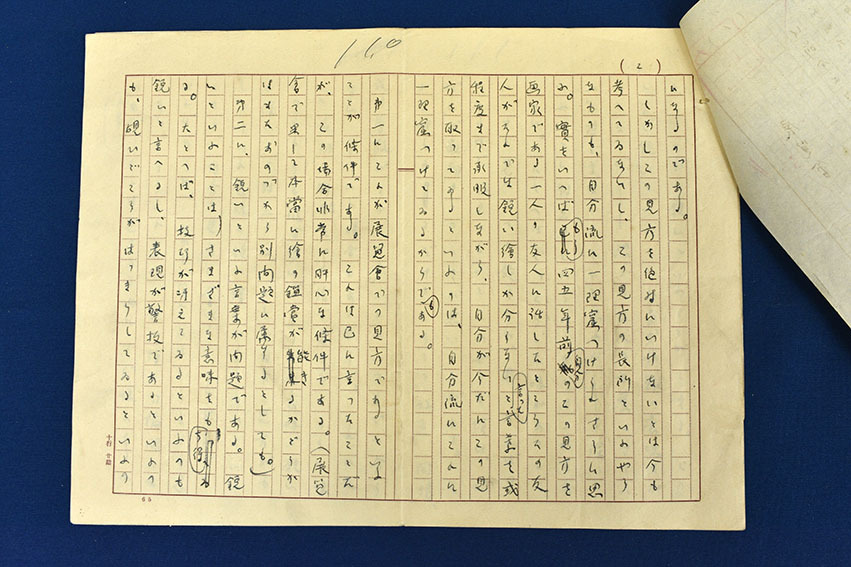 (2)
170
いするのである。
しかしこの見方を絶対にいけないとは今も
考へてゐないし、この見方の長所といふやう
なものも、自分流に一理窟つけられさうに思
ふ。實をいへばもう四五年前、自分のこの見方を
画家である一人の友人に話したところその友
人がそんでは鋭い繪しか分らないと言つた言葉を或
程度まで承服しながら、自分が今だにこの見
方を取つてゐるといふのは、自分流にこれに
一理窟つけてゐるからである。
第一これが展覧會での見方であるといふ
ことが條件である。これは已に言つたことだ
が、この場合非常に肝心な條件である。(展覧
會で果して本當に繪の鑑賞が能きるかどうか
はまたおのづから別問題に属するとしても。)
第二に、鋭いといふ言葉が問題である。鋭
いといふことは、さまざまな意味をもち得る
る。たとへば、技巧が冴えてゐるといふのも
鋭いと言へるし、表現が警抜であるといふの
も、覘ひどころがはつきりしてゐるといふの
十行 廿詰
65